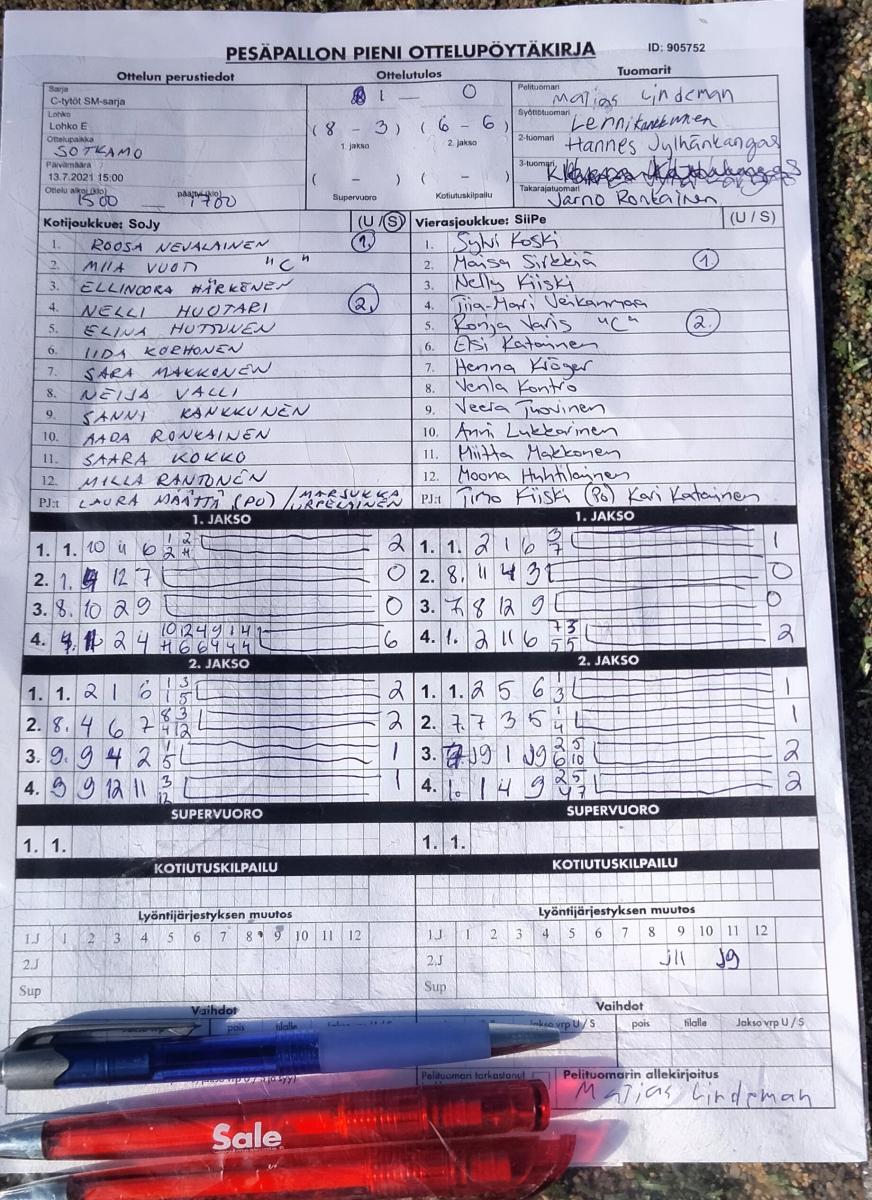 PESÄPALLON PIENI OTTELUPÖYTÄKIRJA ID: 905752
Ottelun perustiedot Ottelutulos Tuomarit
Sarja
C-tytöt SM-sarja
1 — 0
Pelituomari Matias Lindeman
Lohko
Lohko E
(8 - 3) (6 - 6)
1. jakso 2. jakso
Syöttötuomari Lenni
Ottelupaikka
SOTKAMO
2-tuomari Hannes Jylhänkangas
Päivämäärä
13.7.2021 15:00
( - ) ( - )
3-tuomari
Ottelu alkoi (klo) 1500 — päättyi (klo) 1700
Supervuoro Kotiutuskilpailu
Takarajatuomari Jarno Ronkainen
Kotijoukkue: SoJy (U / S) Vierasjoukkue: SiiPe (U / S)
1. ROOSA NEVALAINEN 1. 1. Sylvi Koski
2. MIIA VUOTI "C" 2. Maisa Sirkkiä 1
3. ELLINOORA HÄRKÖNEN 3. Nelly Kiiski
4. NELLI HUOTARI 2. 4. Tiia-Mari Veikanmaa
5. ELINA HUTTUNEN 5. Ronja Varis "C" 2.
6. IIDA KORHONEN 6. Elsi Katainen
7. SARA MAKKONEN 7. Henna Kröger
8. NEIJA VALLI 8. Venla Kontro
9. SANNI KANKKUNEN 9. Veera Tuovinen
10. AADA RONKAINEN 10. Anni Lukkarinen
11. SAARA KOKKO 11. Miitta Makkonen
12. MILLA RANTONEN 12. Moona Huhtilainen
PJ:t LAURA MÄÄTTÄ (PU) / MARJUKKA URPELAINEN PJ:t Timo Kiiski (PU) Kari Katainen
1. JAKSO 1. JAKSO
1. 1. 10 11 6 1 2 2 4 2 1. 1. 2 1 6 3 7 1
2. 1. 12 7 0 2. 8. 11 4 3 0
3. 8. 10 2 9 0 3. 7. 8 12 9 0
4. 2 4 10 12 4 9 1 4 4 6 6 4 4 4 6 4. 1. 2 11 6 7 3 5 5 2
2. JAKSO 2. JAKSO
1. 1. 2 1 6 1 3 1 5 2 1. 1. 2 5 6 1 3 1
2. 8. 4 6 7 8 3 4 12 2 2. 7. 7 3 5 1 4 1
3. 9. 9 4 2 1 5 1 3. J9 1 J9 2 5 6 10 2
4. 9 9 12 11 3 12 1 4. 1. 1 4 9 2 5 4 7 2
SUPERVUORO SUPERVUORO
1. 1. 1. 1.
KOTIUTUSKILPAILU KOTIUTUSKILPAILU
Lyöntijärjestyksen muutos Lyöntijärjestyksen muutos
1.J 1 2 3 4 5 6 7 8 9 10 11 12 1.J 1 2 3 4 5 6 7 8 9 10 11 12
2.J 2.J J11 J9
Sup Sup
Vaihdot Vaihdot
pois tilalle Jakso vrp U / S pois tilalle Jakso vrp U / S
Pelituomari tarkastanut Pelituomarin allekirjoitus
Matias Lindeman
Sale